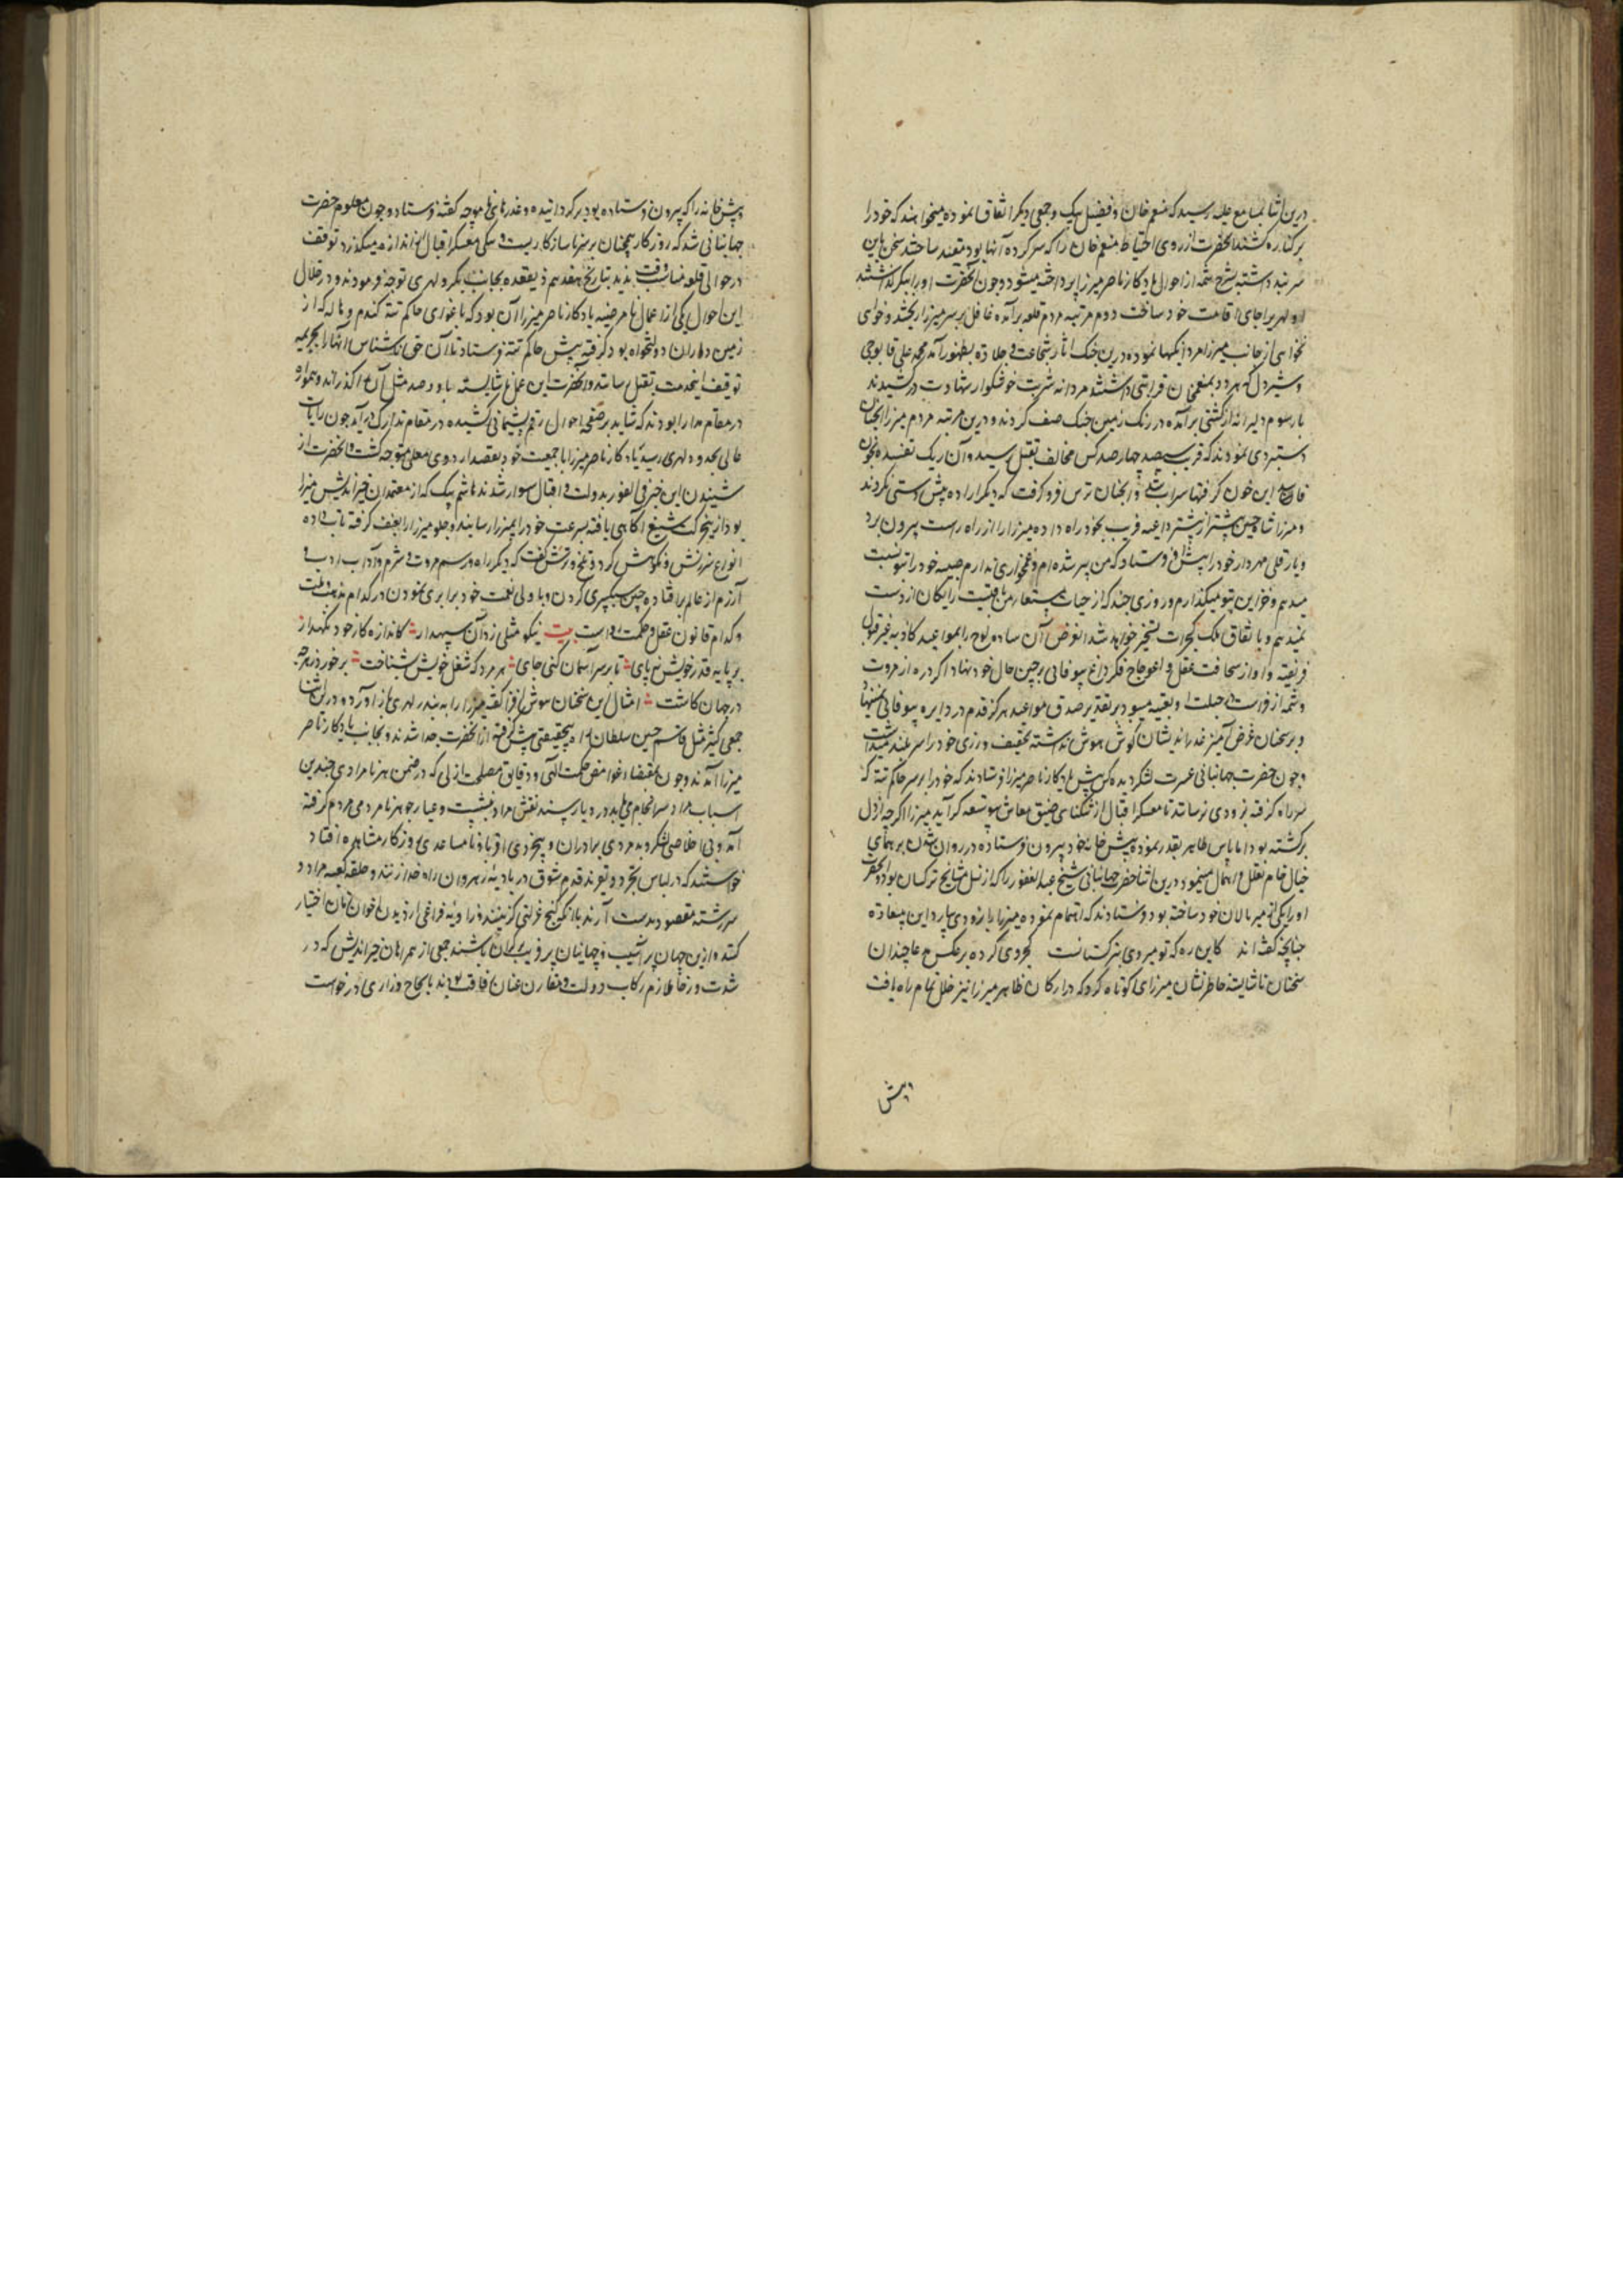 درین اثنا بمسامع علیه رسید که منعم خان و فضیل بیک و جمعی دیکر اتفاق نموده میخواهند که خود را
بر کناره کشند آنحضرت از روی احتیاط منعم خان را که سر کرده آنها بود مقید ساختند سخن باین
سر بند داشته بشرح شمه از احوال یادکار ناصر میرزا پرداخته میشود و چون آنحضرت او را ببکر کذاشتند
لوهری را جای اقامت خود ساخت دوم مرتبه مردم قلعه برآمده غافل بر سر میرزا ریختند و خوای
نخوای از جانب میرزا مردانکیها نموده درین جنک آثار شجاعت و جلادت بظهور آمد محمد علی قابوچی
و شیردل که هر دو بمنعم خان قرابتی داشتند مردانه شربت خوشکوار شهادت درکشیدند
بار سوم دلیرانه از کشتی برآمده در ریک زمین جنک صف کردند و درین مرتبه مردم میرزا آنچنان
دستبردی نمودند که قریب سیصد چهار صد کس مخالف بقتل رسید و آن ریک تفتیده بخون
این خون کرفتها سیراب شد و آنچنان ترس فرو کرفت که دیکر اراده پیش دستی نکردند
و میرزا شاه حسین پیشتر از پیشتر داعیه فریب بخود راه داده میرزا را از راه راست بیرون برد
و یار قلی مهردار خود را پیش او فرستاد که من پیر شده ام و غمخواری ندارم صبیه خود را بتو نسبت
میدهم و خزاین بتو میکذارم و روزی چند که از حیات مستعار من باقیست رایکان از دست
نمیدهم و باتفاق ملک کجرات تسخیر خواهد شد الغرض آن ساده لوح را بمواعید کاذبه غیر قبول
فریفته و او از سخافت عقل و اعوجاج فکر داغ بیوفائی بر جبین حال خود نهاد اکر ذره از مروت
و شمه از فراست در جبلت او تعبیه میبود بر تقدیر صدق مواعید هرکز قدم در دایره بیوفائی نمینهاد
و بر سخنان غرض آمیز غدراندیشان کوش هوش نداشته بحقیقت ورزی خود را سربلند میداشت
و چون حضرت جهانبانی عسرت لشکر دیده کس پیش یادکار ناصر میرزا فرستادند که خود را بر سر حاکم تته که
سر راه کرفته بزودی رساند تا معسکر اقبال از تنکنای ضیق معاش بتوسعه کراید میرزا اکرچه از دل
برکشته بود اما پاس ظاهر بقدر نموده پیش خانه خود بیرون فرستاده در روان شدن بر همای
خیال خام تغافل و اهمال مینمود درین اثنا حضرت جهانبانی شیخ عبدالغفور را که از نسل مشایخ ترکستان بود و آنحضرت
او را یکی از میر مالان خود ساخته بود فرستادند که اهتمام نموده میرزا را بزودی بیارد این بیسعادت
چنانچه کفته اند کاین ره که تو میروی بترکستانست کجروی کرده برعکس مدعا چندان
سخنان ناشایسته خاطرنشان میرزای کوتاه کرد که در ارکان ظاهر میرزا نیز خلل تمام راه یافت
پیش
پیش خانه را که بیرون فرستاده بود برکردانیده و عذرهای ناموجه کفته فرستاد و چون معلوم حضرت
جهانبانی شد که روزکار همچنان بر سر ناسازکاریست و سکی معسکر اقبال از اندازه میکذرد توقف
در حوالی قلعه مناسب وقت ندیده بتاریخ هفدهم ذیقعده بجانب بکر و لهری توجه فرمودند و در خلال
این احوال یکی از اعمال نامرضیه یادکار ناصر میرزا آن بود که باغوای حاکم تته کندم و هاله که از
زمین داران دولتخواه بود کرفته پیش حاکم تته فرستاد تا آن حق ناشناس آنها را بجریمه
توفیق اینخدمت بقتل رساند و آنحضرت این عمل ناشایسته باور صد مثل آن را کذرانده و همواره
در مقام مدارا بودند که شاید بر صفحه احوال رقم پشیمانی کشیده در مقام تدارک درآید چون رایات
عالی بحدود لهری رسید یادکار ناصر میرزا با جمعیت خود بقصد اردوی معلی متوجه کشت و آنحضرت از
شنیدن این خبر فی الفور بدولت و اقبال سوار شدند هاشم بیک که از معتمدان خیراندیش میرزا
بود ازین حرکت شنیع آکاهی یافته بسرعت خود را بمیرزا رسانید و جلو میرزا را بعنف کرفته بازداد و
انواع سرزنش و نکوهش کرد و تلخ و ترش کفت که دیکر راه و رسم مروت و شرم و آداب ادب و
آزرم از عالم برافتاده چنین سبکسری کردن و با ولی نعمت خود برابری نمودن در کدام مذهب و ملت
و کدام قانون عقل و حکمت رواست بیت نیکو مثلی زد آن سپهدار کاندازه کار خود نکهدار
بر پایه قدر خویش نه پای تا بر سر آسمان کنی جای هر مرد که شغل خویش شناخت برخورد ز هرچه
در جهان کاشت امثال این سخنان هوش افزا کفته میرزا را به بندر لهری باز آورد و درین اثنا
جمعی کثیر مثل قاسم حسین سلطان راه بیحقیقتی پیش کرفته از آنحضرت جدا شدند و بجانب یادکار ناصر
میرزا آمدند و چون بمقتضای غوامض حکمت الهی و دقایق مصلحت ازلی که در ضمن هر نامرادی چندین
اسباب مراد سرانجام می یابد در دیار سند نقش مراد ننشست و عیار جوهر نامردمی مردم کرفته
آمد و بی اخلاصی لشکر و بدمردی برادران و بیخردی اقربا و نامساعدی روزکار مشاهده افتاد
خواستند که در لباس تجرد و تفرد قدم شوق در بادیه نهند و رهروان راه خدا زنند و حلقه کعبه مراد و
سررشته مقصود بدست آرند یا آنکه کنج عزلتی کزینند و زاویه فراغی از دیدن اخوان زمان اختیار
کنند و ازین جهان پر آشیب و جهانیان پر فریب برکران باشند جمعی از همراهان خیراندیش که در
شدت و رخا ملازم رکاب دولت و مقارن عنان رفاقت بودند بالحاح و زاری درخواست